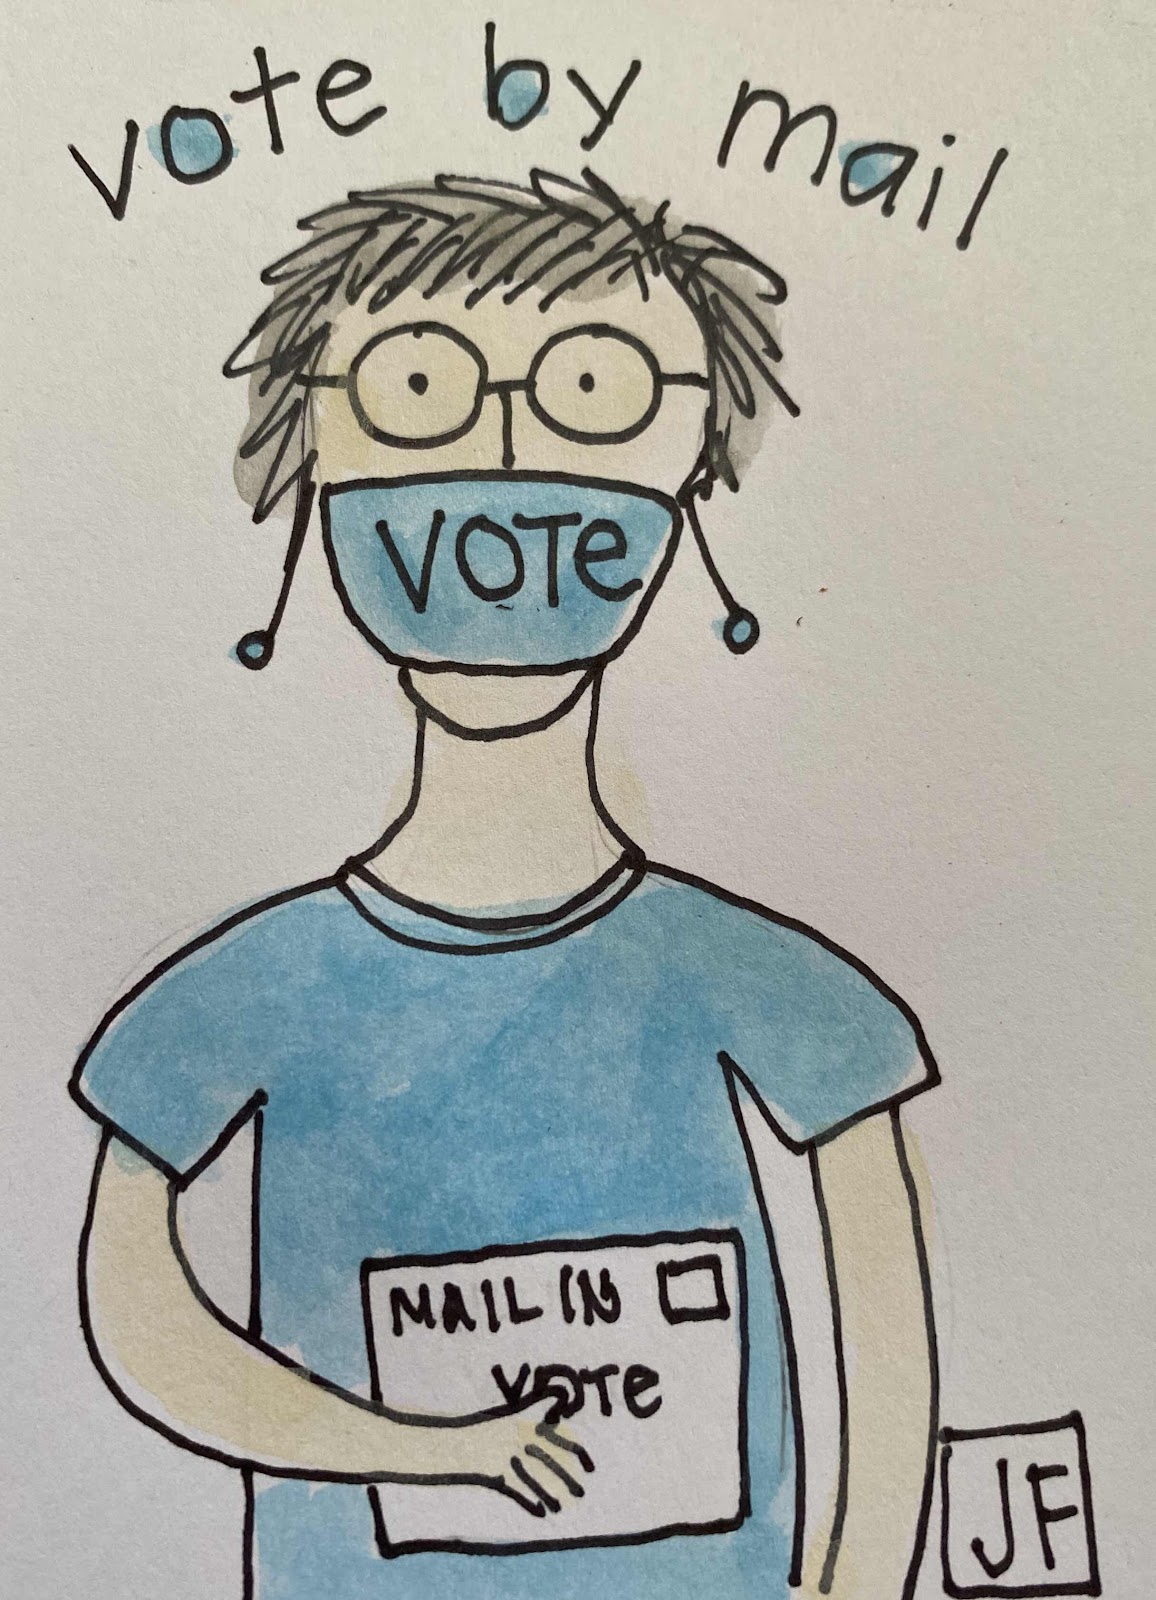 vote by mail
VOTe
MAIL IN
VOTe
JF